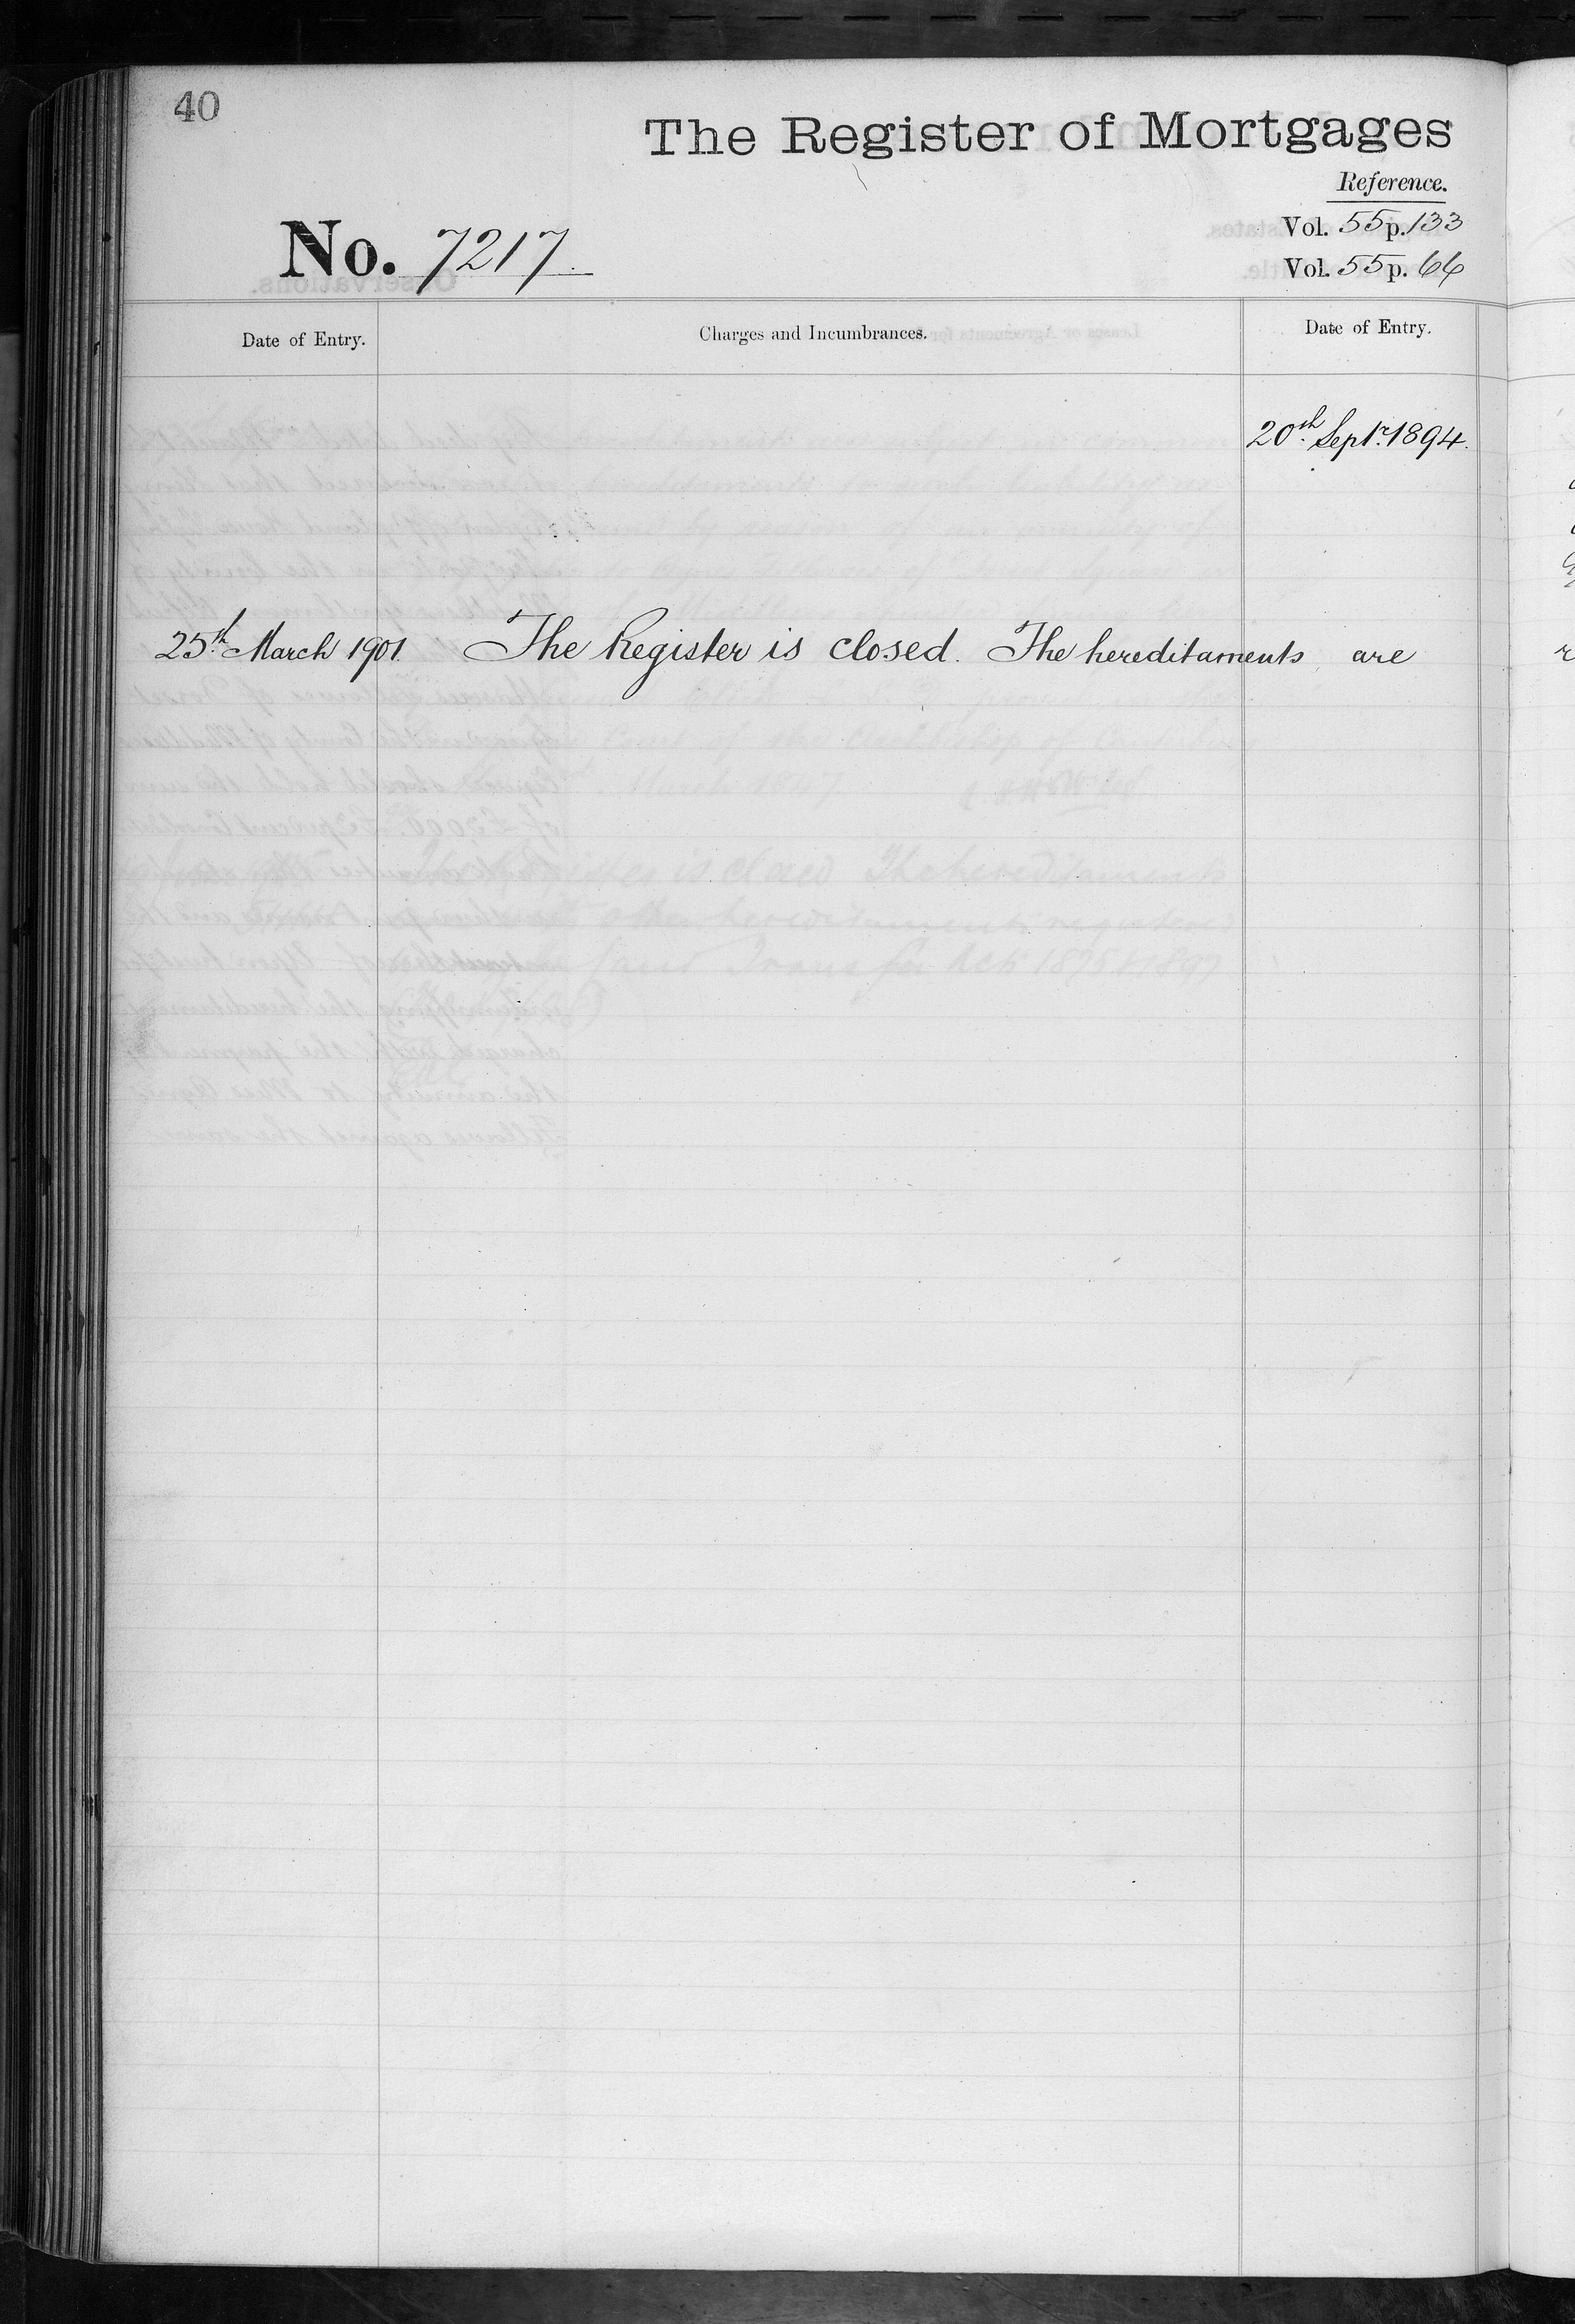 40
The Register of Mortgages
Reference.
Vol. 55 p. 133
No. 7217
Vol. 55 p. 66
Date of Entry.
Charges and Incumbrances.
Date of Entry.
20th Septr. 1894.
25th March 1901. The Register is closed. The hereditaments are